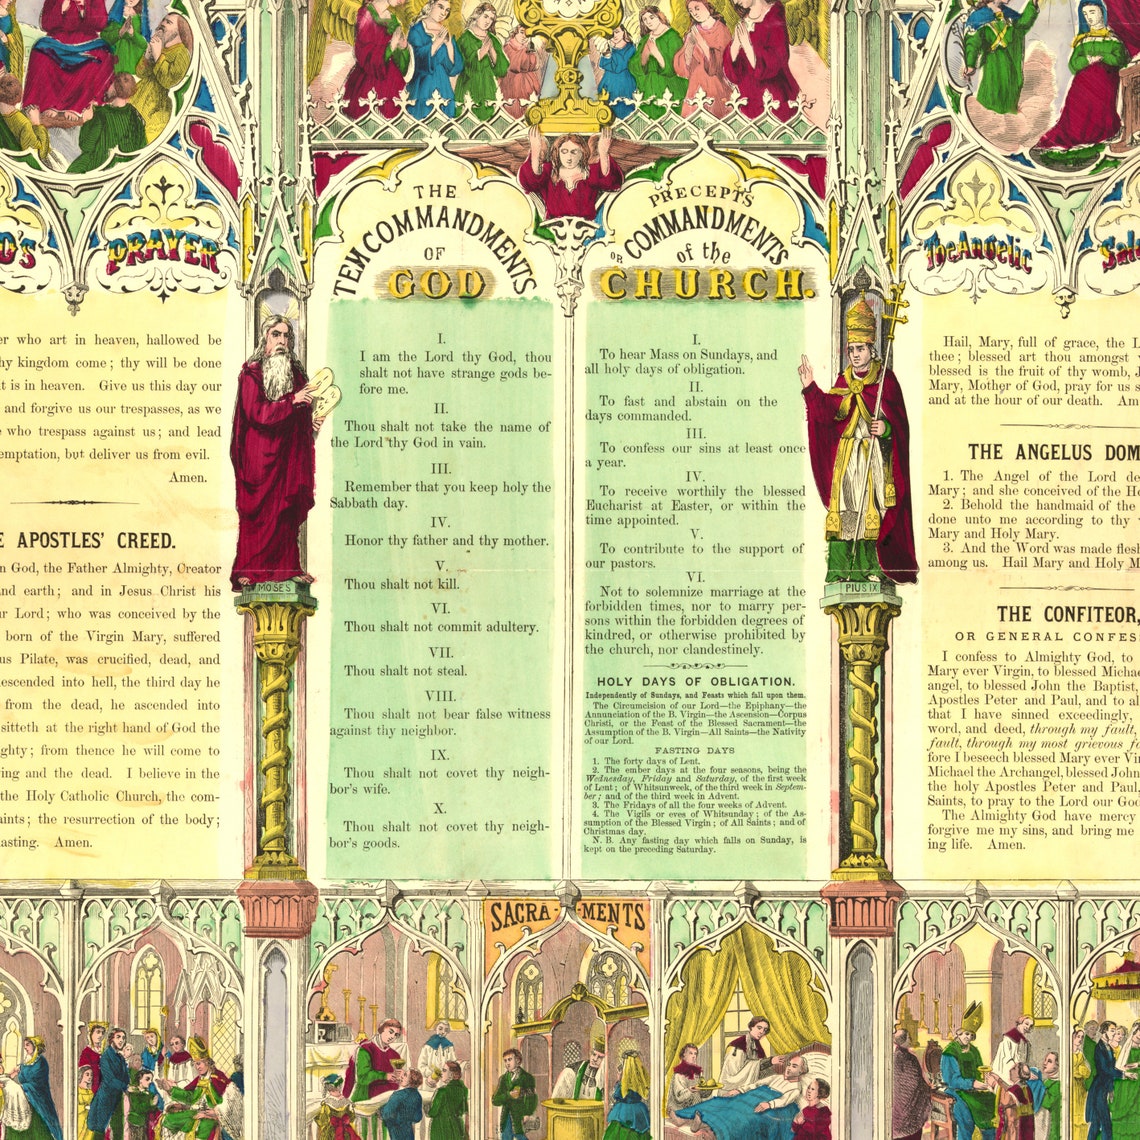 D'S PRAYER.
er who art in heaven, hallowed be
hy kingdom come; thy will be done
it is in heaven. Give us this day our
and forgive us our trespasses, as we
who trespass against us; and lead
emptation, but deliver us from evil.
Amen.
E APOSTLES' CREED.
n God, the Father Almighty, Creator
nd earth; and in Jesus Christ his
ur Lord; who was conceived by the
born of the Virgin Mary, suffered
us Pilate, was crucified, dead, and
descended into hell, the third day he
from the dead, he ascended into
sitteth at the right hand of God the
ghty; from thence he will come to
ving and the dead. I believe in the
the Holy Catholic Church, the com-
aints; the resurrection of the body;
lasting. Amen.
MOSES
THE
TEN COMMANDMENTS
OF
GOD
I.
I am the Lord thy God, thou
shalt not have strange gods be-
fore me.
II.
Thou shalt not take the name of
the Lord thy God in vain.
III.
Remember that you keep holy the
Sabbath day.
IV.
Honor thy father and thy mother.
V.
Thou shalt not kill.
VI.
Thou shalt not commit adultery.
VII.
Thou shalt not steal.
VIII.
Thou shalt not bear false witness
against thy neighbor.
IX.
Thou shalt not covet thy neigh-
bor's wife.
X.
Thou shalt not covet thy neigh-
bor's goods.
PRECEPTS
OR COMMANDMENTS
of the
CHURCH.
I.
To hear Mass on Sundays, and
all holy days of obligation.
II.
To fast and abstain on the
days commanded.
III.
To confess our sins at least once
a year.
IV.
To receive worthily the blessed
Eucharist at Easter, or within the
time appointed.
V.
To contribute to the support of
our pastors.
VI.
Not to solemnize marriage at the
forbidden times, nor to marry per-
sons within the forbidden degrees of
kindred, or otherwise prohibited by
the church, nor clandestinely.
HOLY DAYS OF OBLIGATION.
Independently of Sundays, and Feasts which fall upon them.
The Circumcision of our Lord—the Epiphany—the
Annunciation of the B. Virgin—the Ascension—Corpus
Christi, or the Feast of the Blessed Sacrament—the
Assumption of the B. Virgin—All Saints—the Nativity
of our Lord.
FASTING DAYS
1. The forty days of Lent.
2. The ember days at the four seasons, being the
Wednesday, Friday and Saturday, of the first week
of Lent; of Whitsunweek, of the third week in Septem-
ber; and of the third week in Advent.
3. The Fridays of all the four weeks of Advent.
4. The Vigils or eves of Whitsunday; of the As-
sumption of the Blessed Virgin; of All Saints; and of
Christmas day.
N. B. Any fasting day which falls on Sunday, is
kept on the preceding Saturday.
PIUS IX.
The Angelic Salu
Hail, Mary, full of grace, the L
thee; blessed art thou amongst
blessed is the fruit of thy womb, J
Mary, Mother of God, pray for us s
and at the hour of our death. Am
THE ANGELUS DOM
1. The Angel of the Lord de
Mary; and she conceived of the Ho
2. Behold the handmaid of the
done unto me according to thy
Mary and Holy Mary.
3. And the Word was made flesh
among us. Hail Mary and Holy M
THE CONFITEOR,
OR GENERAL CONFES
I confess to Almighty God, to
Mary ever Virgin, to blessed Michae
angel, to blessed John the Baptist,
Apostles Peter and Paul, and to al
that I have sinned exceedingly,
word, and deed, through my fault,
fault, through my most grievous fa
fore I beseech blessed Mary ever Vir
Michael the Archangel, blessed John
the holy Apostles Peter and Paul,
Saints, to pray to the Lord our God
The Almighty God have mercy
forgive me my sins, and bring me
ing life. Amen.
SACRA-MENTS